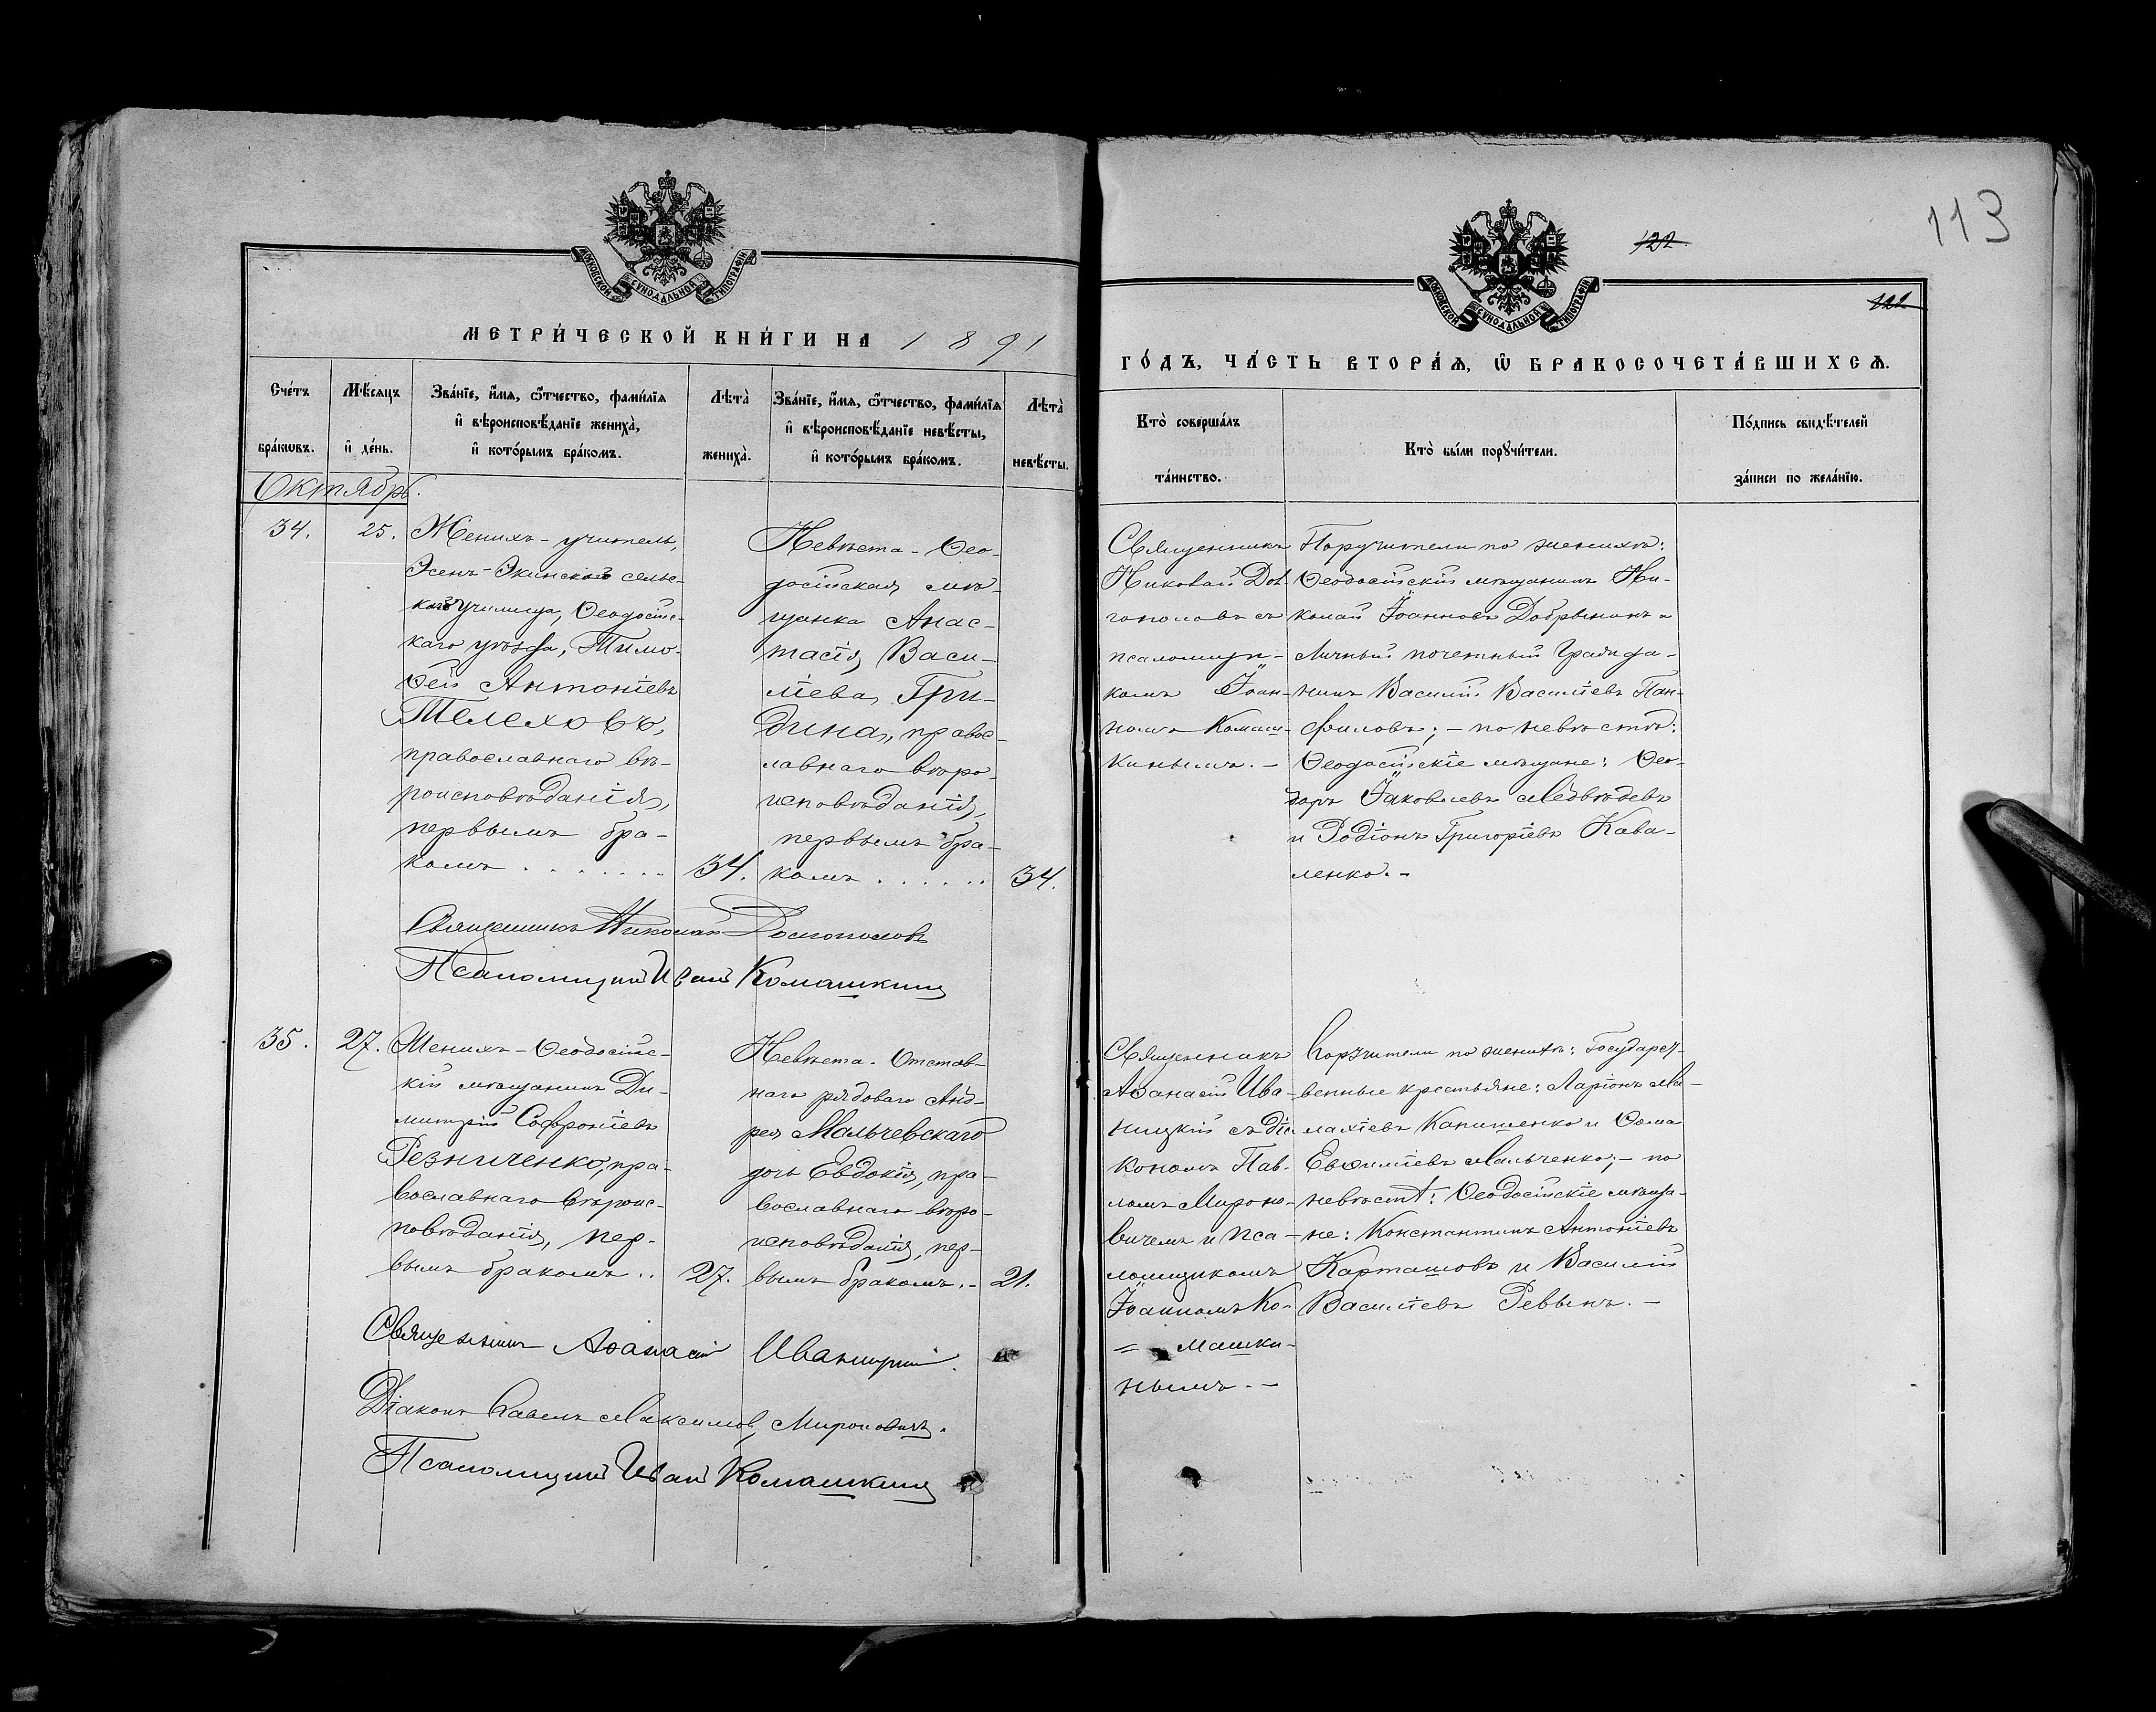 МОСКОВСКОЙ СУНОДАЛЬНОЙ ТИПОГРАФІИ
МЕТРИ́ЧЕСКОЙ КНИ́ГИ НА 1891
Сче́тъ бра́ковъ.
Мѣ́сяцъ и҆ де́нь.
Зва́нїе, и҆́мѧ, ѻ҆́тчество, фами́лїѧ
и҆ вѣроисповѣ́данїе жениха̀,
и҆ кото́рымъ бра́комъ.
Лѣта̀
жениха̀.
Зва́нїе, и҆́мѧ, ѻ҆́тчество, фами́лїѧ
и҆ вѣроисповѣ́данїе невѣ́сты,
и҆ кото́рымъ бра́комъ.
Лѣта̀
невѣ́сты.
Октябрь.
34.
25.
Женихъ - учитель,
Эсенъ-Экинскаго сельс-
каго училища, Ѳеодосійс-
каго уѣзда, Тимо-
ѳей Антоніевъ
Телеховъ,
православнаго вѣ-
роисповѣданія,
первымъ бра-
комъ . . . . . . .
34.
Невѣста - Ѳео-
досійская мѣ-
щанка Анас-
тасія Васи-
ліева Гри-
дина, правос-
лавнаго вѣро-
исповѣданія,
первымъ бра-
комъ . . . . . .
34.
Священникъ Николай Долгополовъ
Псаломщикъ Иванъ Комашкинъ
35.
27.
Женихъ - Ѳеодосійс-
кій мѣщанинъ Ди-
митрій Софроніевъ
Резниченко, пра-
вославнаго вѣроис-
повѣданія, пер-
вымъ бракомъ ..
27.
Невѣста - Отстав-
наго рядоваго Анд-
рея Мальчевскаго
дочь Евдокія, пра-
вославнаго вѣро-
исповѣданія, пер-
вымъ бракомъ. -
21.
Священникъ Аѳанасій Иваницкій.
Діаконъ Павелъ Максимов. Мироновичъ.
Псаломщикъ Иванъ Комашкинъ
113
122
122
МОСКОВСКОЙ СУНОДАЛЬНОЙ ТИПОГРАФІИ
ГО́ДЪ, ЧА́СТЬ ВТОРА́Ѧ, Ѽ БРАКОСОЧЕТА́ВШИХСѦ.
Кто̀ соверша́лъ
та́инство.
Кто̀ бы́ли порꙋчи́тели.
По́дпись свидѣ́телей
за́писи по жела́нїю.
Священникъ
Николай Дол-
гополовъ съ
псаломщи-
комъ Іоан-
номъ Комаш-
кинымъ. -
Поручители по женихѣ:
Ѳеодосійскій мѣщанинъ Ни-
колай Іоанновъ Добрынинъ и
Личный почетный Гражда-
нинъ Василій Василіевъ Пан-
филовъ; - по невѣстѣ:
Ѳеодосійскіе мѣщане: Ѳео-
доръ Іаковлевъ Медвѣдевъ
и Родіонъ Григоріевъ Кава-
ленко. -
Священникъ
Аѳанасій Ива-
ницкій съ діа
кономъ Пав-
ломъ Мироно-
вичемъ и Пса-
ломщикомъ
Іоанномъ Ко-
= машки-
нымъ. -
Поручители по женихѣ: Государст-
венные крестьяне: Ларіонъ Ма-
лахіевъ Капишенко и Ѳома
Евѳиміевъ Мальченко; - по
невѣстѣ: Ѳеодосійскіе мѣща-
не: Константинъ Антоніевъ
Карташовъ и Василій
Василіевъ Ревынъ. -